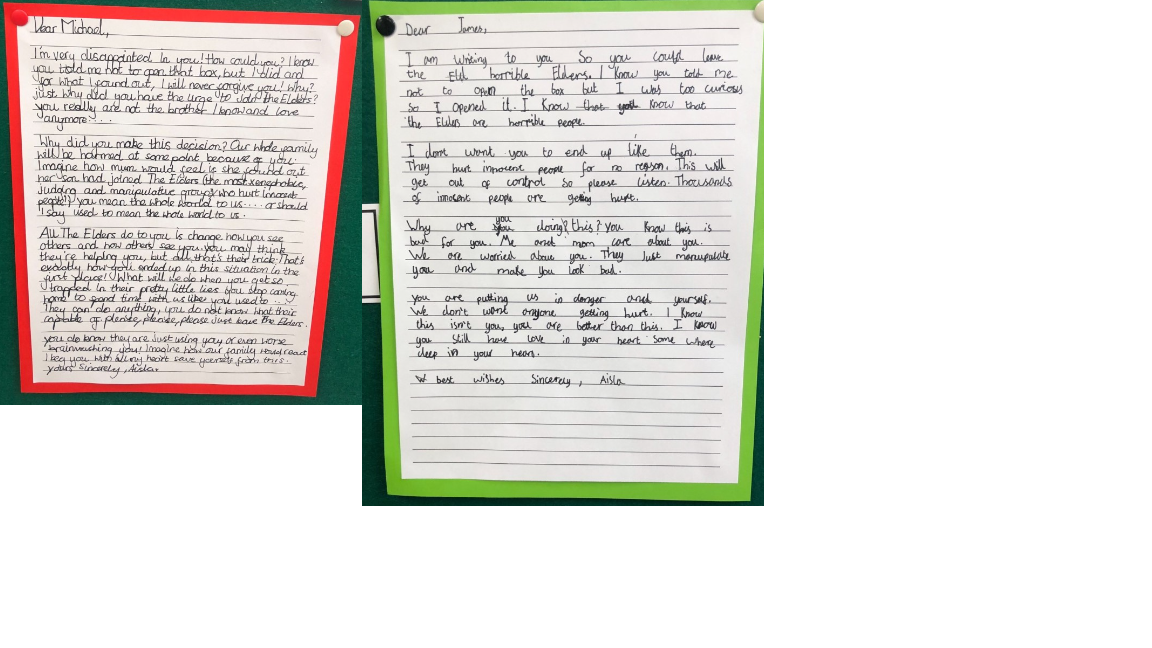 Dear Michael,
I'm very disappointed in you! How could you? I know
you told me not to open that box, but I did and
for what I found out, I will never forgive you! Why?
just why did you have the urge to join the Elders?
you really are not the brother I know and love
anymore....
Why did you make this decision? Our whole family
will be harmed at some point because of you.
Imagine how mum would feel is she found out
her son had joined The Elders (the most xenephobic,
judging and manipulative groups who hurt innocent
people)! you mean the whole world to us.... or should
I say used to mean the whole world to us.
All The Elders do to you is change how you see
others and how others see you. you may think
they're helping you, but all that's their trick. That's
exactly how you ended up in this situation in the
first place! What will we do when you get so
trapped in their pretty little lies you stop coming
home to spend time with us like you used to ...
They can do anything, you do not know what their
capable of please, please, please just leave the Elders.
you do know they are just using you or even worse
brainwashing you! Imagine how our family would react
I beg you with all my heart save yourself from this.
yours sincerely, Aisla
Dear James,
I am writing to you So you could leave
the Elders horrible Elders. I know you told me
not to open the box but I was too curious
so I opened it. I know that you know that
the Elders are horrible people.
I dont want you to end up like them.
They hurt innocent people for no reason. This will
get out of control so please listen. Thousands
of innocent people are getting hurt.
Why are you doing this? You know this is
bad for you. Me and mom care about you.
We are worried about you. They Just manupulate
you and make you look bad.
you are putting us in danger and yourself.
We don't want anyone getting hurt. I know
this isn't you, you are better than this. I know
you still have love in your heart some where
deep in your heart.
best wishes Sincerely, Aisla